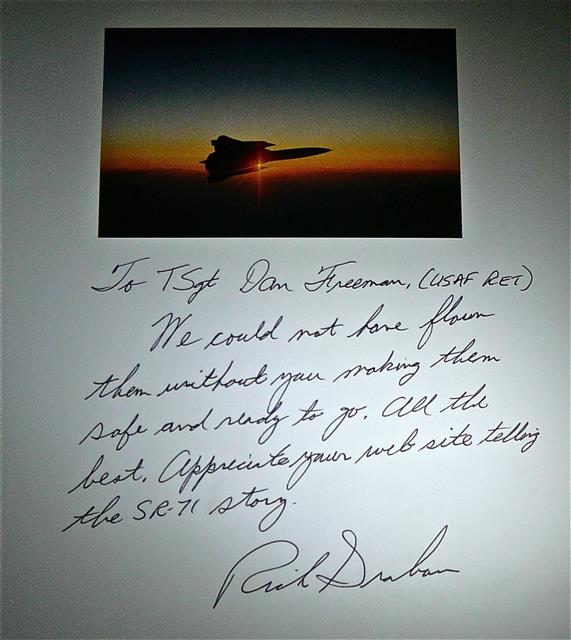 To TSgt Dan Freeman, (USAF RET)
We could not have flown
them without you making them
safe and ready to go. All the
best. Appreciate your web site telling
the SR-71 story.
Rich Graham